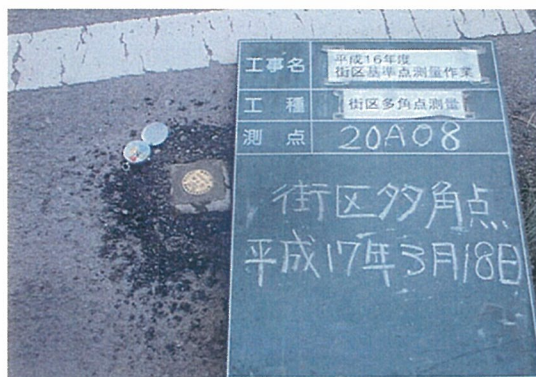 工事名 平成16年度
街区基準点測量作業
工種 街区多角点測量
測点 20A08
街区多角点
平成17年3月18日